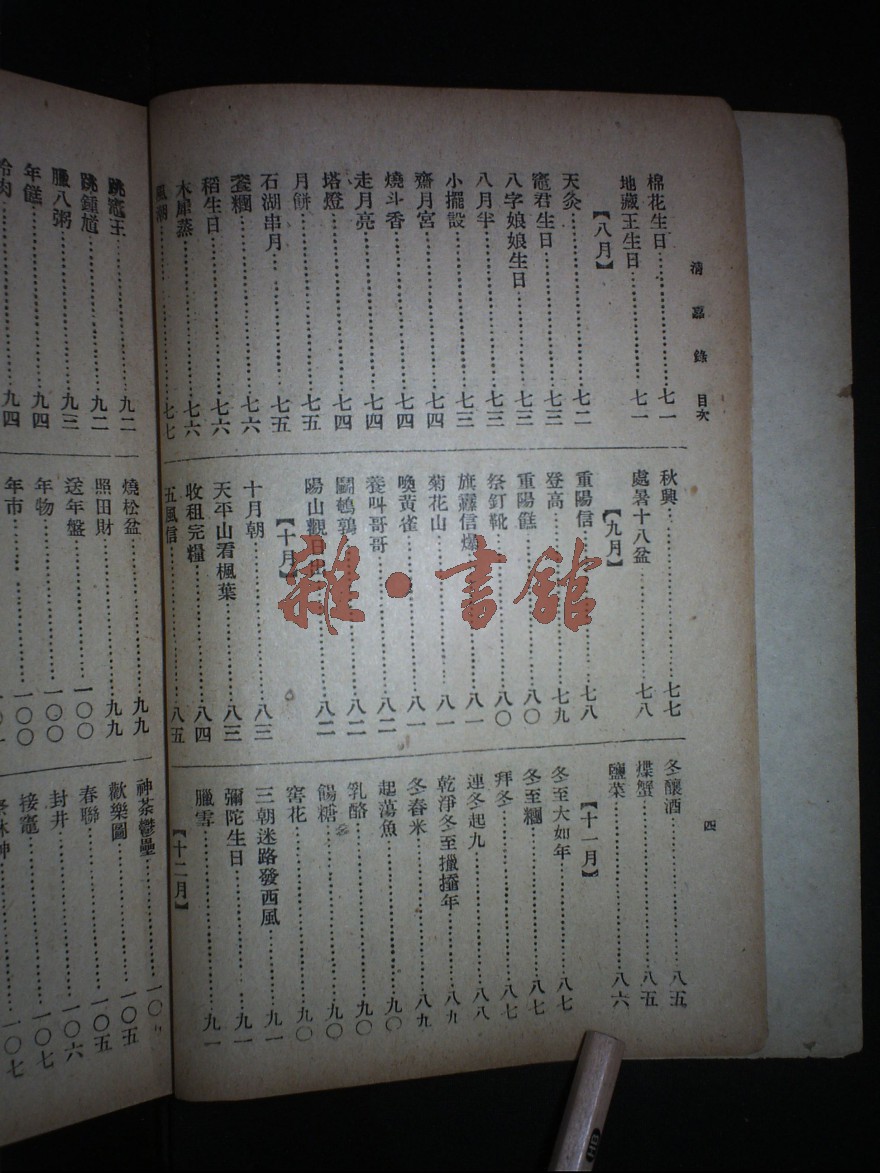 清嘉錄 目次
四
棉花生日……七一
地藏王生日……七一
【八月】
天灸……七二
竈君生日……七三
八字娘娘生日……七三
八月半……七三
小擺設……七三
齋月宮……七四
燒斗香……七四
走月亮……七四
塔燈……七四
月餅……七五
石湖串月……七五
餈糰……七六
稻生日……七六
木犀蒸……七六
風潮……七七
秋興……七七
處暑十八盆……七八
【九月】
重陽信……七八
登高……七九
重陽糕……八〇
祭釘靴……八〇
旗纛信爆……八一
菊花山……八一
喚黃雀……八一
養叫哥哥……八二
鬭鵪鶉……八二
陽山觀日出……八二
【十月】
十月朝……八三
天平山看楓葉……八三
收租完糧……八四
五風信……八五
冬釀酒……八五
煠蟹……八五
鹽菜……八六
【十一月】
冬至大如年……八七
冬至糰……八七
拜冬……八七
連冬起九……八八
乾淨冬至邋遢年……八九
冬舂米……八九
起蕩魚……九〇
乳酪……九〇
餳糖……九〇
窖花……九〇
三朝迷路發西風……九一
彌陀生日……九一
臘雪……九一
【十二月】
跳竈王……九二
跳鍾馗……九二
臘八粥……九三
年糕……九四
冷肉……九四
燒松盆……九九
照田財……九九
送年盤……一〇〇
年物……一〇〇
年市
神荼鬱壘
歡樂圖……一〇五
春聯……一〇五
封井……一〇六
接竈……一〇七
一〇七
雜·書館
HB